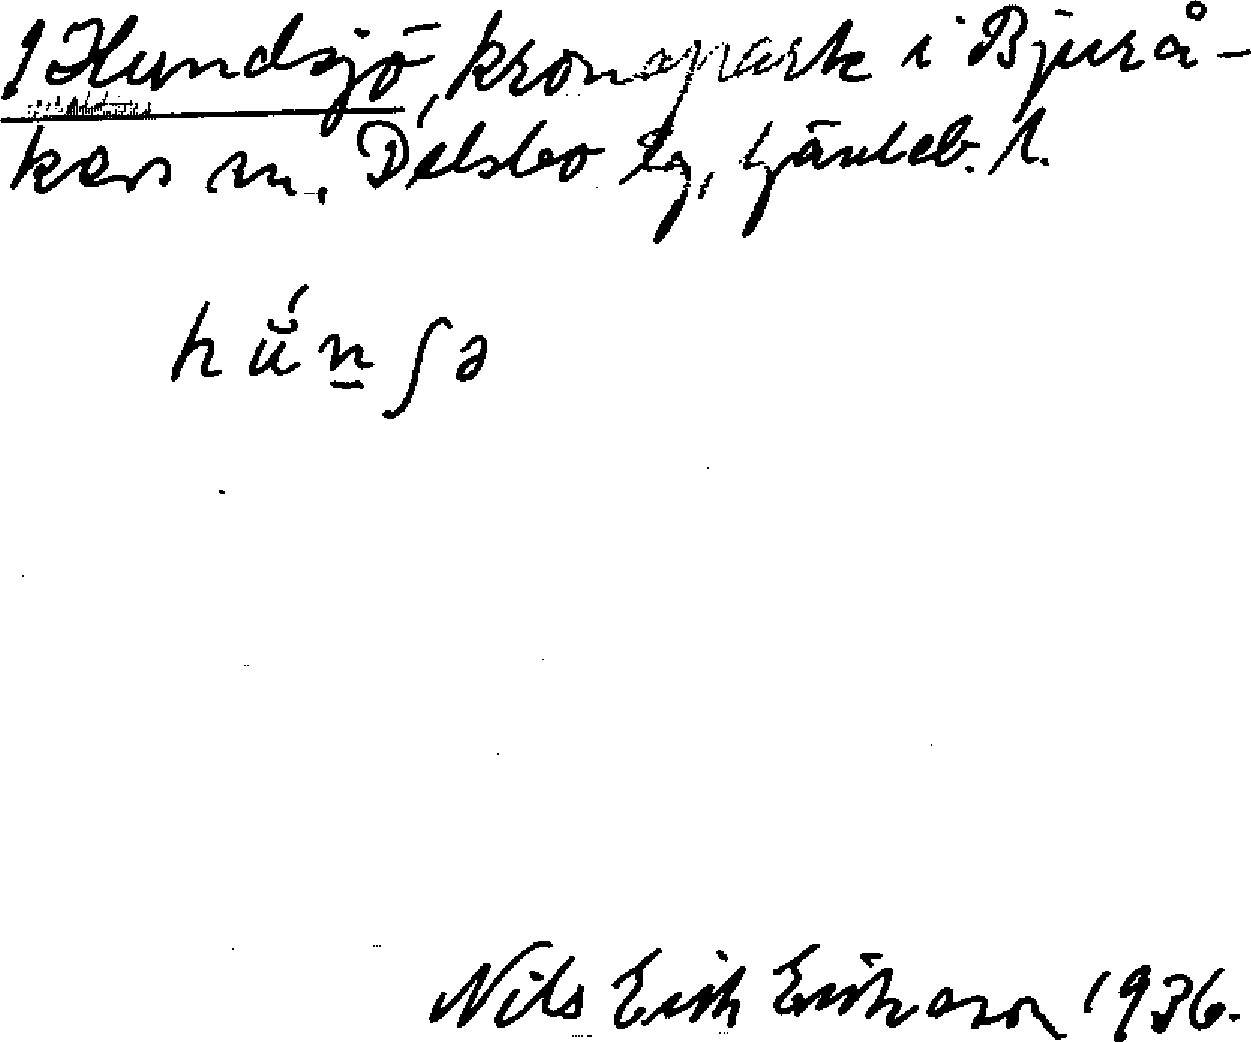 1 Hundsjö, kronopark i Bjurå-
kers sn. Delsbo tg, Gävleb. l.
hŭ́n̲ʃə
Nils Erik Erikson 1936.